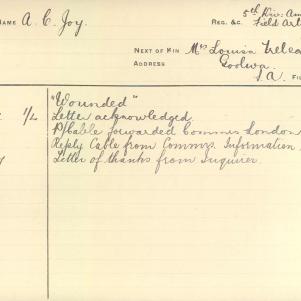 NAME A. C. Joy.
5th Div: Am
REG. &C. Field Art
NEXT OF KIN Mrs Louisa
ADDRESS Godwa.
S A. FI
1/4 "Wounded"
Letter acknowledged.
P/Cable forwarded Commrs London
Reply Cable from Commrs. Information
Letter of thanks from Inquirer.